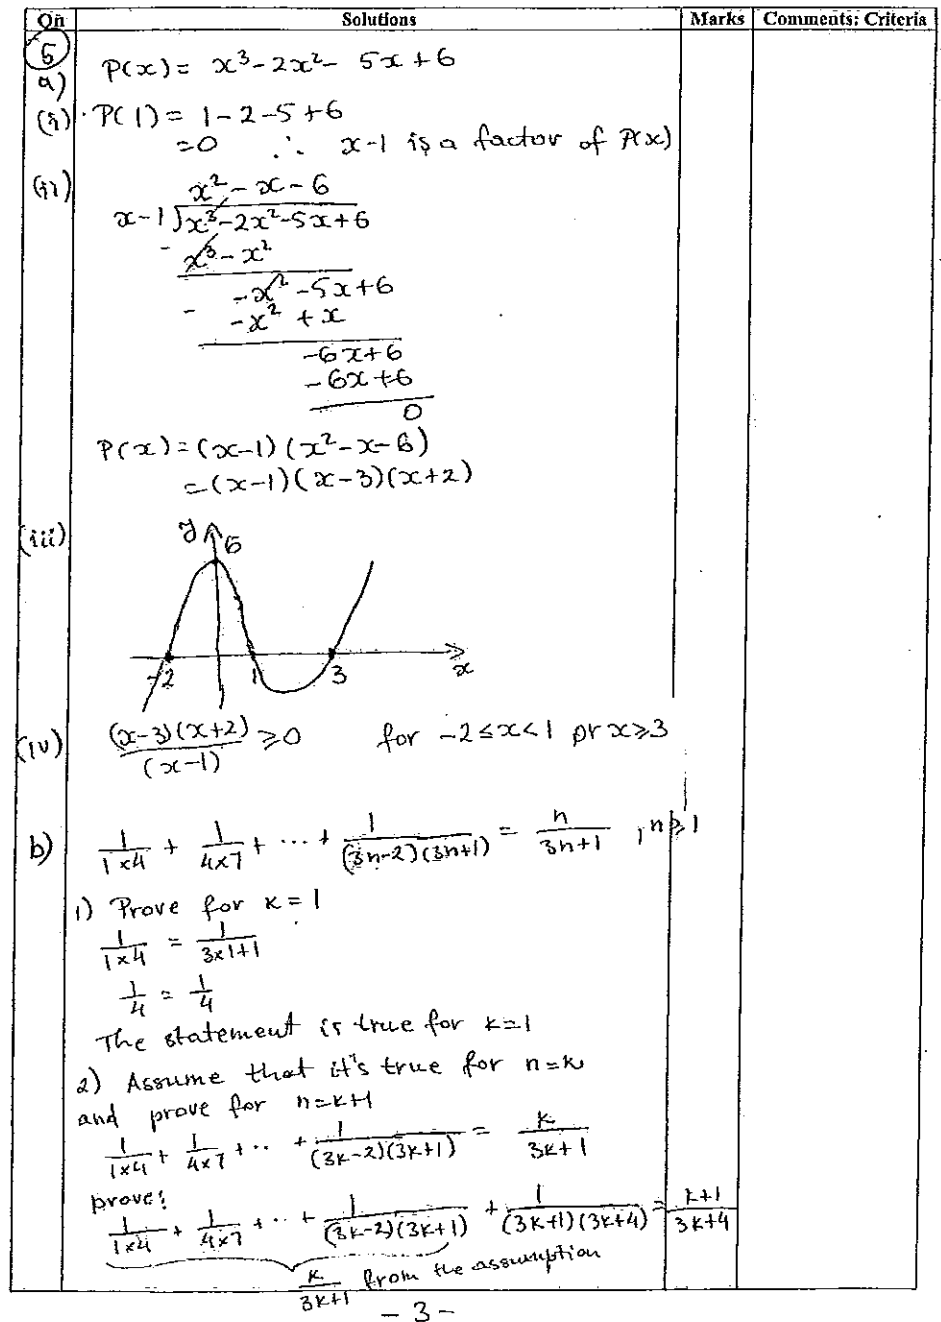 Qn Solutions Marks Comments: Criteria
5
a) P(x) = x³ - 2x² - 5x + 6
(i) P(1) = 1 - 2 - 5 + 6
= 0 ∴ x-1 is a factor of P(x)
(ii) x² - x - 6
x-1 ) x³ - 2x² - 5x + 6
- x³ - x²
-x² - 5x + 6
- -x² + x
-6x + 6
-6x + 6
0
P(x) = (x-1)(x² - x - 6)
= (x-1)(x-3)(x+2)
(iii) y 6
-2 1 3 x
(iv) (x-3)(x+2)/(x-1) ≥ 0 for -2 ≤ x < 1 or x ≥ 3
b) 1/(1×4) + 1/(4×7) + ... + 1/((3n-2)(3n+1)) = n/(3n+1) , n ≥ 1
1) Prove for k = 1
1/(1×4) = 1/(3×1+1)
1/4 = 1/4
The statement is true for k=1
2) Assume that it's true for n=k
and prove for n=k+1
1/(1×4) + 1/(4×7) + .. + 1/((3k-2)(3k+1)) = k/(3k+1)
prove:
1/(1×4) + 1/(4×7) + .. + 1/((3k-2)(3k+1)) + 1/((3k+1)(3k+4)) = (k+1)/(3k+4)
k/(3k+1) from the assumption
- 3 -